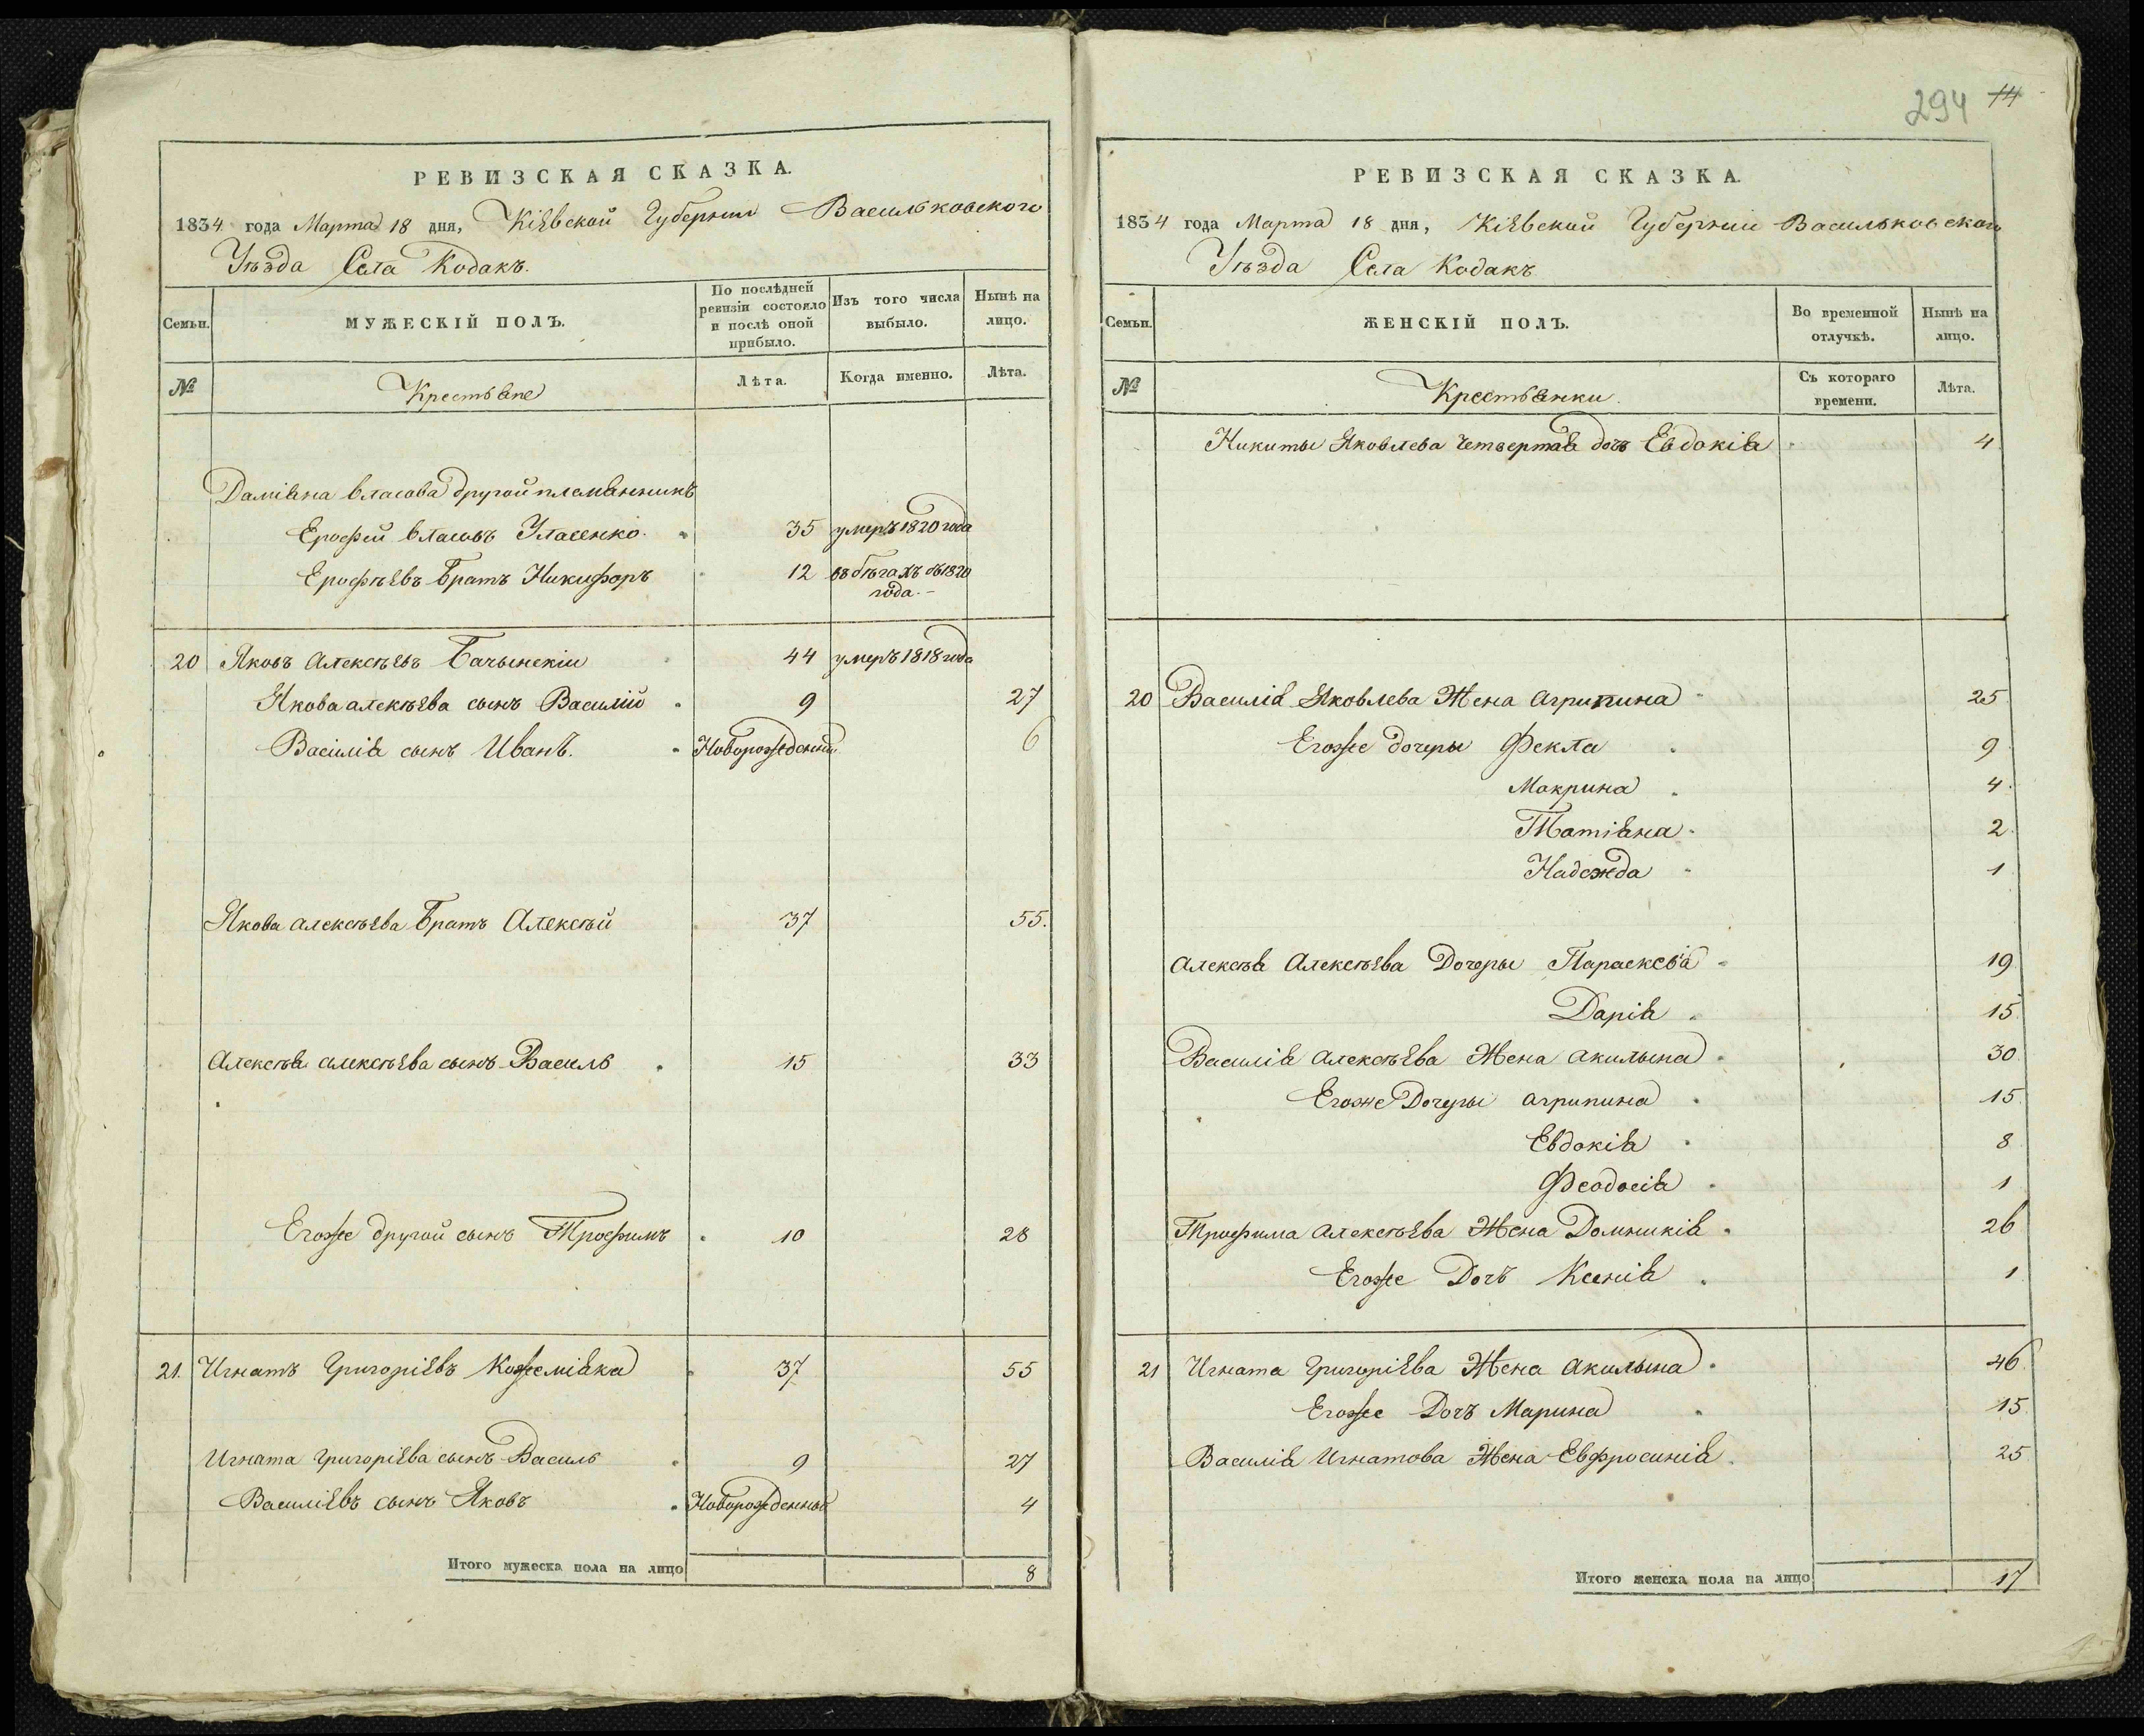 РЕВИЗСКАЯ СКАЗКА.
1834 года Марта 18 дня, Кіевской Губерніи Васильковского
Уѣзда Села Кодакъ.
Семьи.
МУЖЕСКІЙ ПОЛЪ.
По послѣдней
ревизіи состояло
и послѣ оной
прибыло.
Изъ того числа
выбыло.
Нынѣ на
лицо.
№
Крестьяне
Лѣта.
Когда именно.
Лѣта.
Даміяна Власова другой племянникъ
Ерофей Власовъ Уласенко 35 умеръ 1820 года
Ерофѣевъ Братъ Никифоръ 12 въ бѣгахъ съ 1820
года.
20 Яковъ Алексѣевъ Бачынскіи 44 умеръ 1818 года
Якова алексѣева сынъ Василій 9 27
Васіиліа сынъ Иванъ. Новорожденный 6
Якова алексѣева Братъ Алексѣй 37 55.
Алексѣя алексѣева сынъ Василь 15 33
Егоже другой сынъ Трофимъ 10 28
21. Игнатъ Григоріевъ Кожеміяка 37 55
Игната Григоріева сынъ Василь 9 27
Василіевъ сынъ Яковъ Новорожденный 4
Итого мужеска пола на лицо 8
294 14
РЕВИЗСКАЯ СКАЗКА.
1834 года Марта 18 дня, Кіевской Губерніи Васильковского
Уѣзда Села Кодакъ
Семьи.
ЖЕНСКІЙ ПОЛЪ.
Во временной
отлучкѣ.
Нынѣ на
лицо.
№
Крестьянки.
Съ котораго
времени.
Лѣта.
Никиты Яковлева четвертая дочь Евдокія 4
20 Василія Яковлева Жена Агрипина 25
Егоже дочеры Фекла 9
Макрина 4
Татіяна 2
Надежда 1
Алексѣя Алексѣева Дочеры Параскева 19
Дарія 15
Василія Алексѣева Жена Акилына 30
Егоже Дочеры Агрипина 15
Евдокія 8
Феодосія 1
Трофима Алексѣева Жена Домникія 26
Егоже Дочь Ксенія 1
21 Игната Григоріева Жена Акилына 46
Егоже Дочь Марина 15
Василія Игнатова Жена Евфросинія 25
Итого женска пола на лицо 17